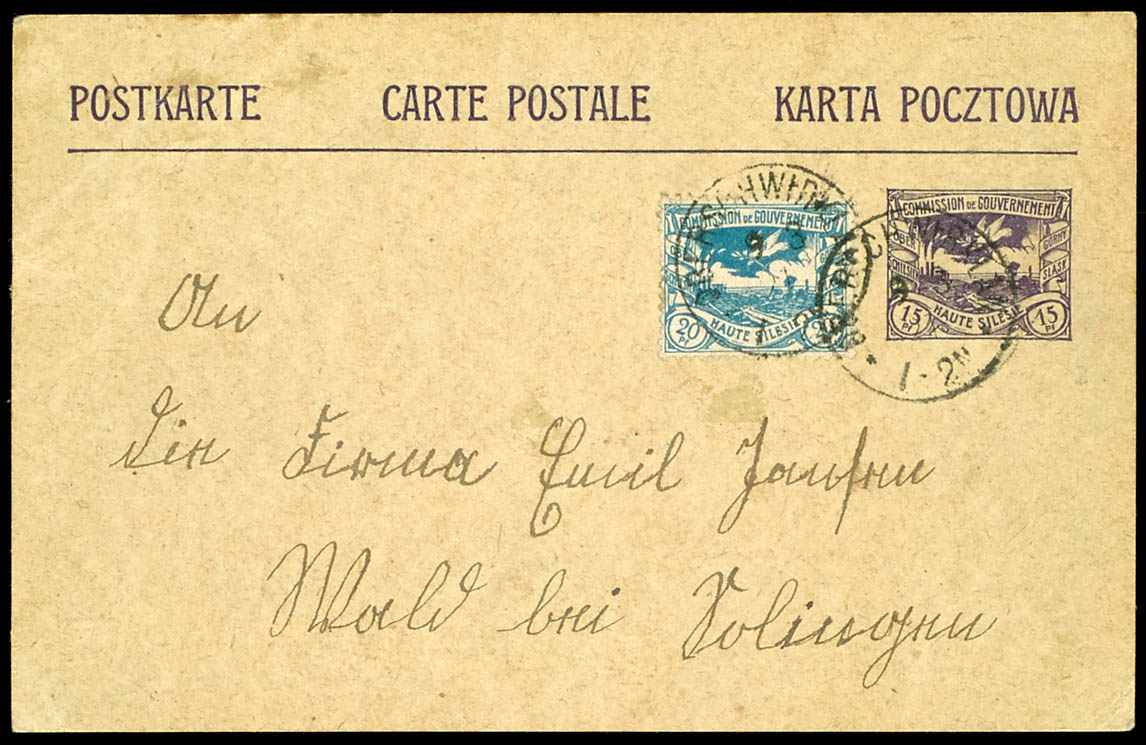 POSTKARTE CARTE POSTALE KARTA POCZTOWA
COMMISSION DE GOUVERNEMENT
20 Pf HAUTE SILESIE 20
COMMISSION DE GOUVERNEMENT
OBER GÓRNY
SCHLESIEN ŚLĄSK
15 Pf HAUTE SILESIE 15 Pf
9 3
1-2N
An
die Firma Emil Jansen
Wald bei Solingen